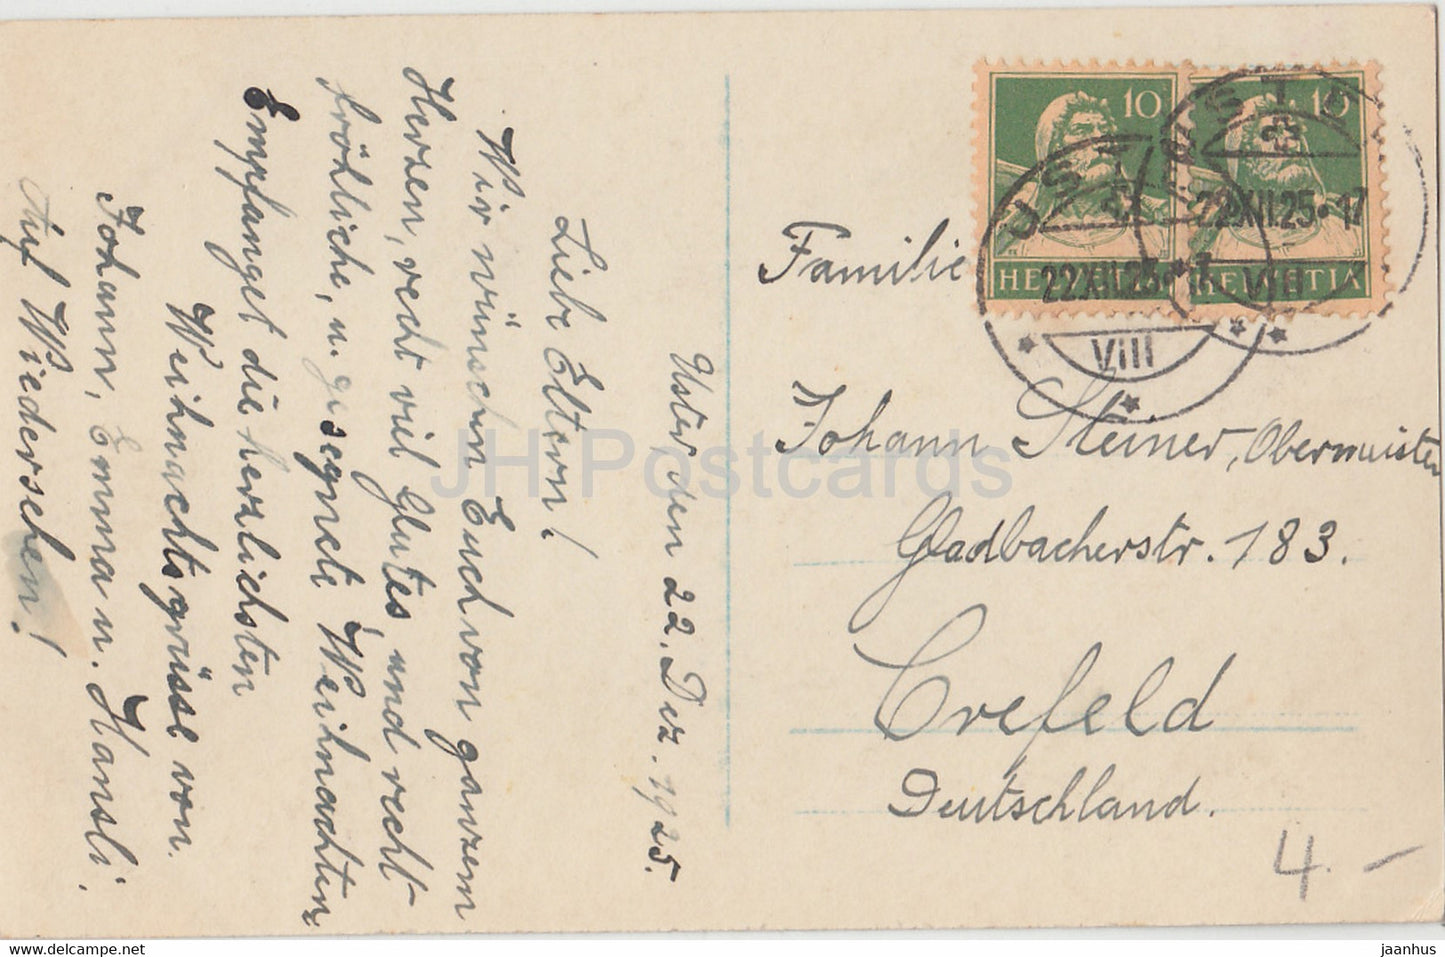 Uster, den 22. Dez. 1925.
Liebe Eltern!
Wir wünschen Euch von ganzem
Herzen, recht viel Glutes, und recht
fröhliche, u. gesegnete Weihnachten,
Empfanget die herzlichsten
Weihnachtsgrüsse von
Johann, Emma u. Hansli.
Auf Wiedersehen!
Familie
Johann Steiner, Obermeister
Gladbacherstr. 183.
Crefeld
Deutschland.
10
10
HELVETIA
HELVETIA
USTER
22.XII.25
VIII
USTER
22.XII.25·17
VIII
4.-
JH Postcards
www.delcampe.net
jaanhus